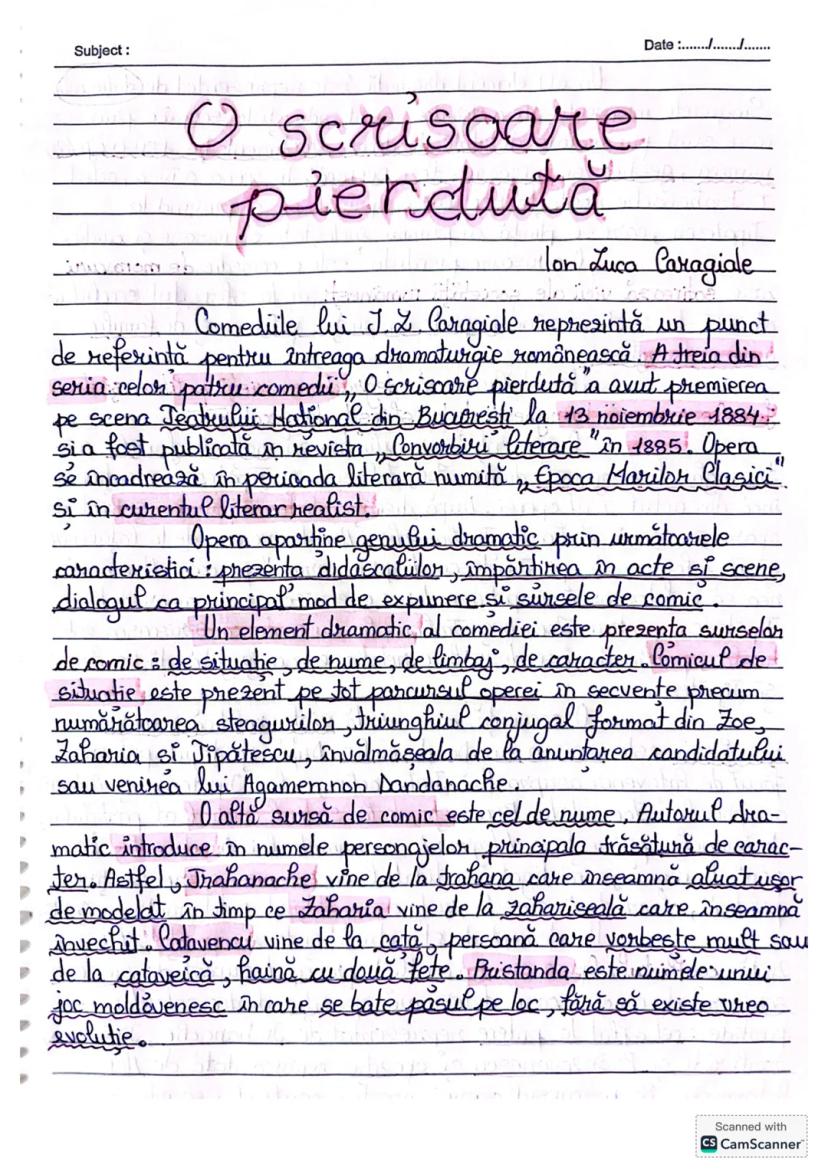 Subject :
Date :......./......./.......
O scrisoare
pierdută
Ion Luca Caragiale
Comediile lui I. L. Caragiale reprezintă un punct
de referință pentru întreaga dramaturgie românească. A treia din
seria celor patru comedii „O scrisoare pierdută" a avut premierea
pe scena Teatrului Național din București la 13 noiembrie 1884
și a fost publicată în revista „Convorbiri literare" în 1885. Opera
se încadrează în perioada literară numită „Epoca Marilor Clasici"
și în curentul literar realist.
Opera aparține genului dramatic prin următoarele
caracteristici : prezența didascaliilor, împărțirea în acte și scene,
dialogul ca principal mod de expunere și sursele de comic.
Un element dramatic al comediei este prezența surselor
de comic : de situație, de nume, de limbaj, de caracter. Comicul de
situație este prezent pe tot parcursul operei în secvențe precum
numărătoarea steagurilor, triunghiul conjugal format din Zoe,
Zaharia și Tipătescu, învălmășeala de la anunțarea candidatului
sau venirea lui Agamemnon Dandanache.
O altă sursă de comic este cel de nume. Autorul dra-
matic introduce în numele personajelor principala trăsătură de carac-
ter. Astfel, Trahanache vine de la trahana care înseamnă aluat ușor
de modelat în timp ce Zaharia vine de la zahariseală care înseamnă
învechit. Cațavencu vine de la cață, persoană care vorbește mult sau
de la cațaveică, haină cu două fețe. Pristanda este numele unui
joc moldovenesc în care se bate pasul pe loc, fără să existe vreo
evoluție.
Scanned with
CS CamScanner